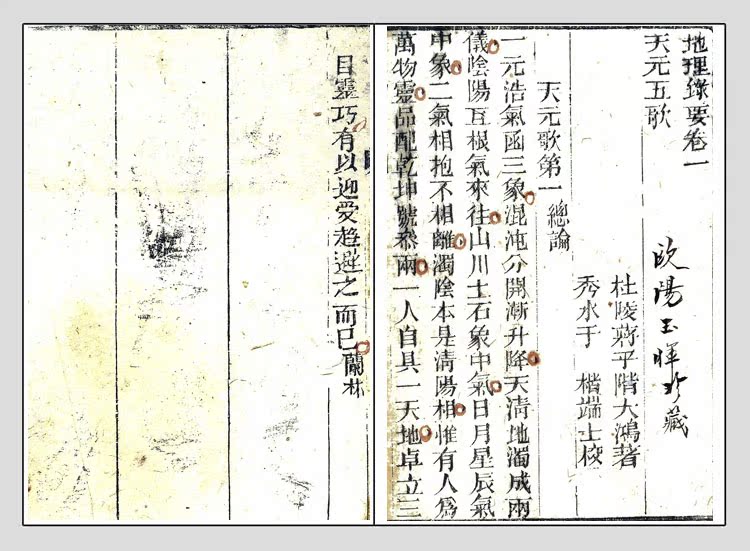 地理錄要卷一
天元五歌
歐陽玉暉珍藏
杜陵蔣平階大鴻著
秀水于楷端士校
天元歌第一 總論
一元浩氣函三象混沌分開漸升降天淸地濁成兩
儀陰陽互根氣來往山川土石象中氣日月星辰氣
中象二氣相抱不相離濁陰本是淸陽相惟有人爲
萬物靈品配乾坤號爲兩一人自具一天地卓立三
目靈巧有以迎受趨避之而已蘭林